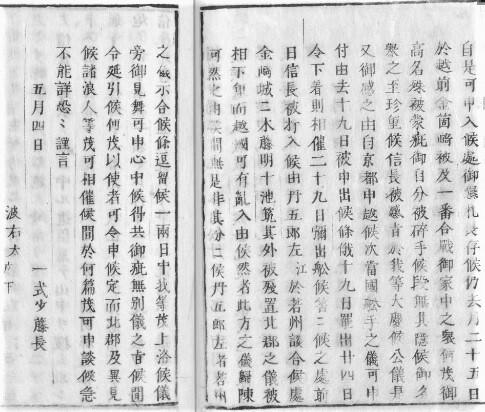 自是可申入處御懇札畏存候仍去月二十五日
於越前金箇崎被及一番合戰御家中之衆何茂御
高名殊被蒙疵御自分被碎手候段無其隱候御名
譽之至珍重候信長被感甚於我等大慶候公儀是
又御感之由自京都申越候次當國舩手之儀可申
付由去十九日被申出候條俄十九日罷出廿四日
令下着則相催二十九日彌出舩候筈ニ候之處前
日信長被打入候由丹五郎左江於若州談合候處
金崎城ニ木藤明十池筑其外被殘置北郡之儀被
相下知而越國可有亂入由候然者此方之儀歸陳
可然之由候間無是非其分ニ候丹五郎左者若州
之儀示合候條逗留候一兩日中ニ我等茂上洛候儀
旁御見舞可申心中候得共御疵無別儀之旨候間
令延引候何茂以使者可令申候定而北郡及異見
候諸浪人等茂可相催候間於何篇茂可申談候急
不能詳悉候恐々謹言
五月四日
一式少藤長
波右太